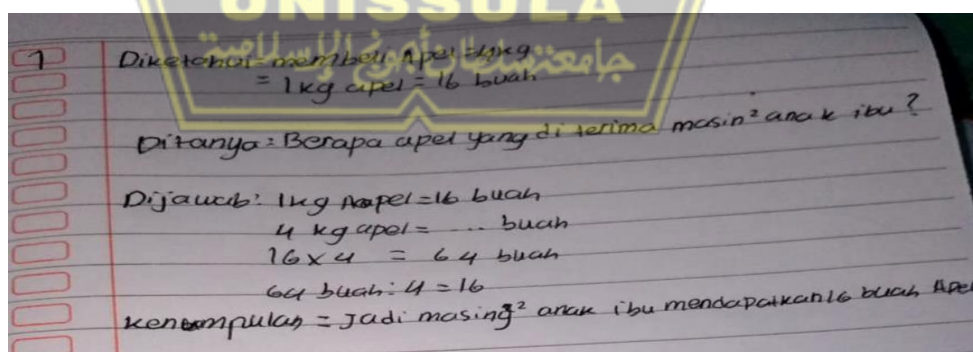 UNISSULA
جامعتنسلطان أجونج الإسلامية
1 Diketahui = membeli Apel = 4kg
= 1kg apel = 16 buah
Ditanya : Berapa apel yang di terima masin² anak ibu?
Dijawab : 1kg Apel = 16 buah
4 kg apel = ... buah
16 x 4 = 64 buah
64 buah : 4 = 16
Kenompulan = Jadi masing² anak ibu mendapatkan 16 buah Apel